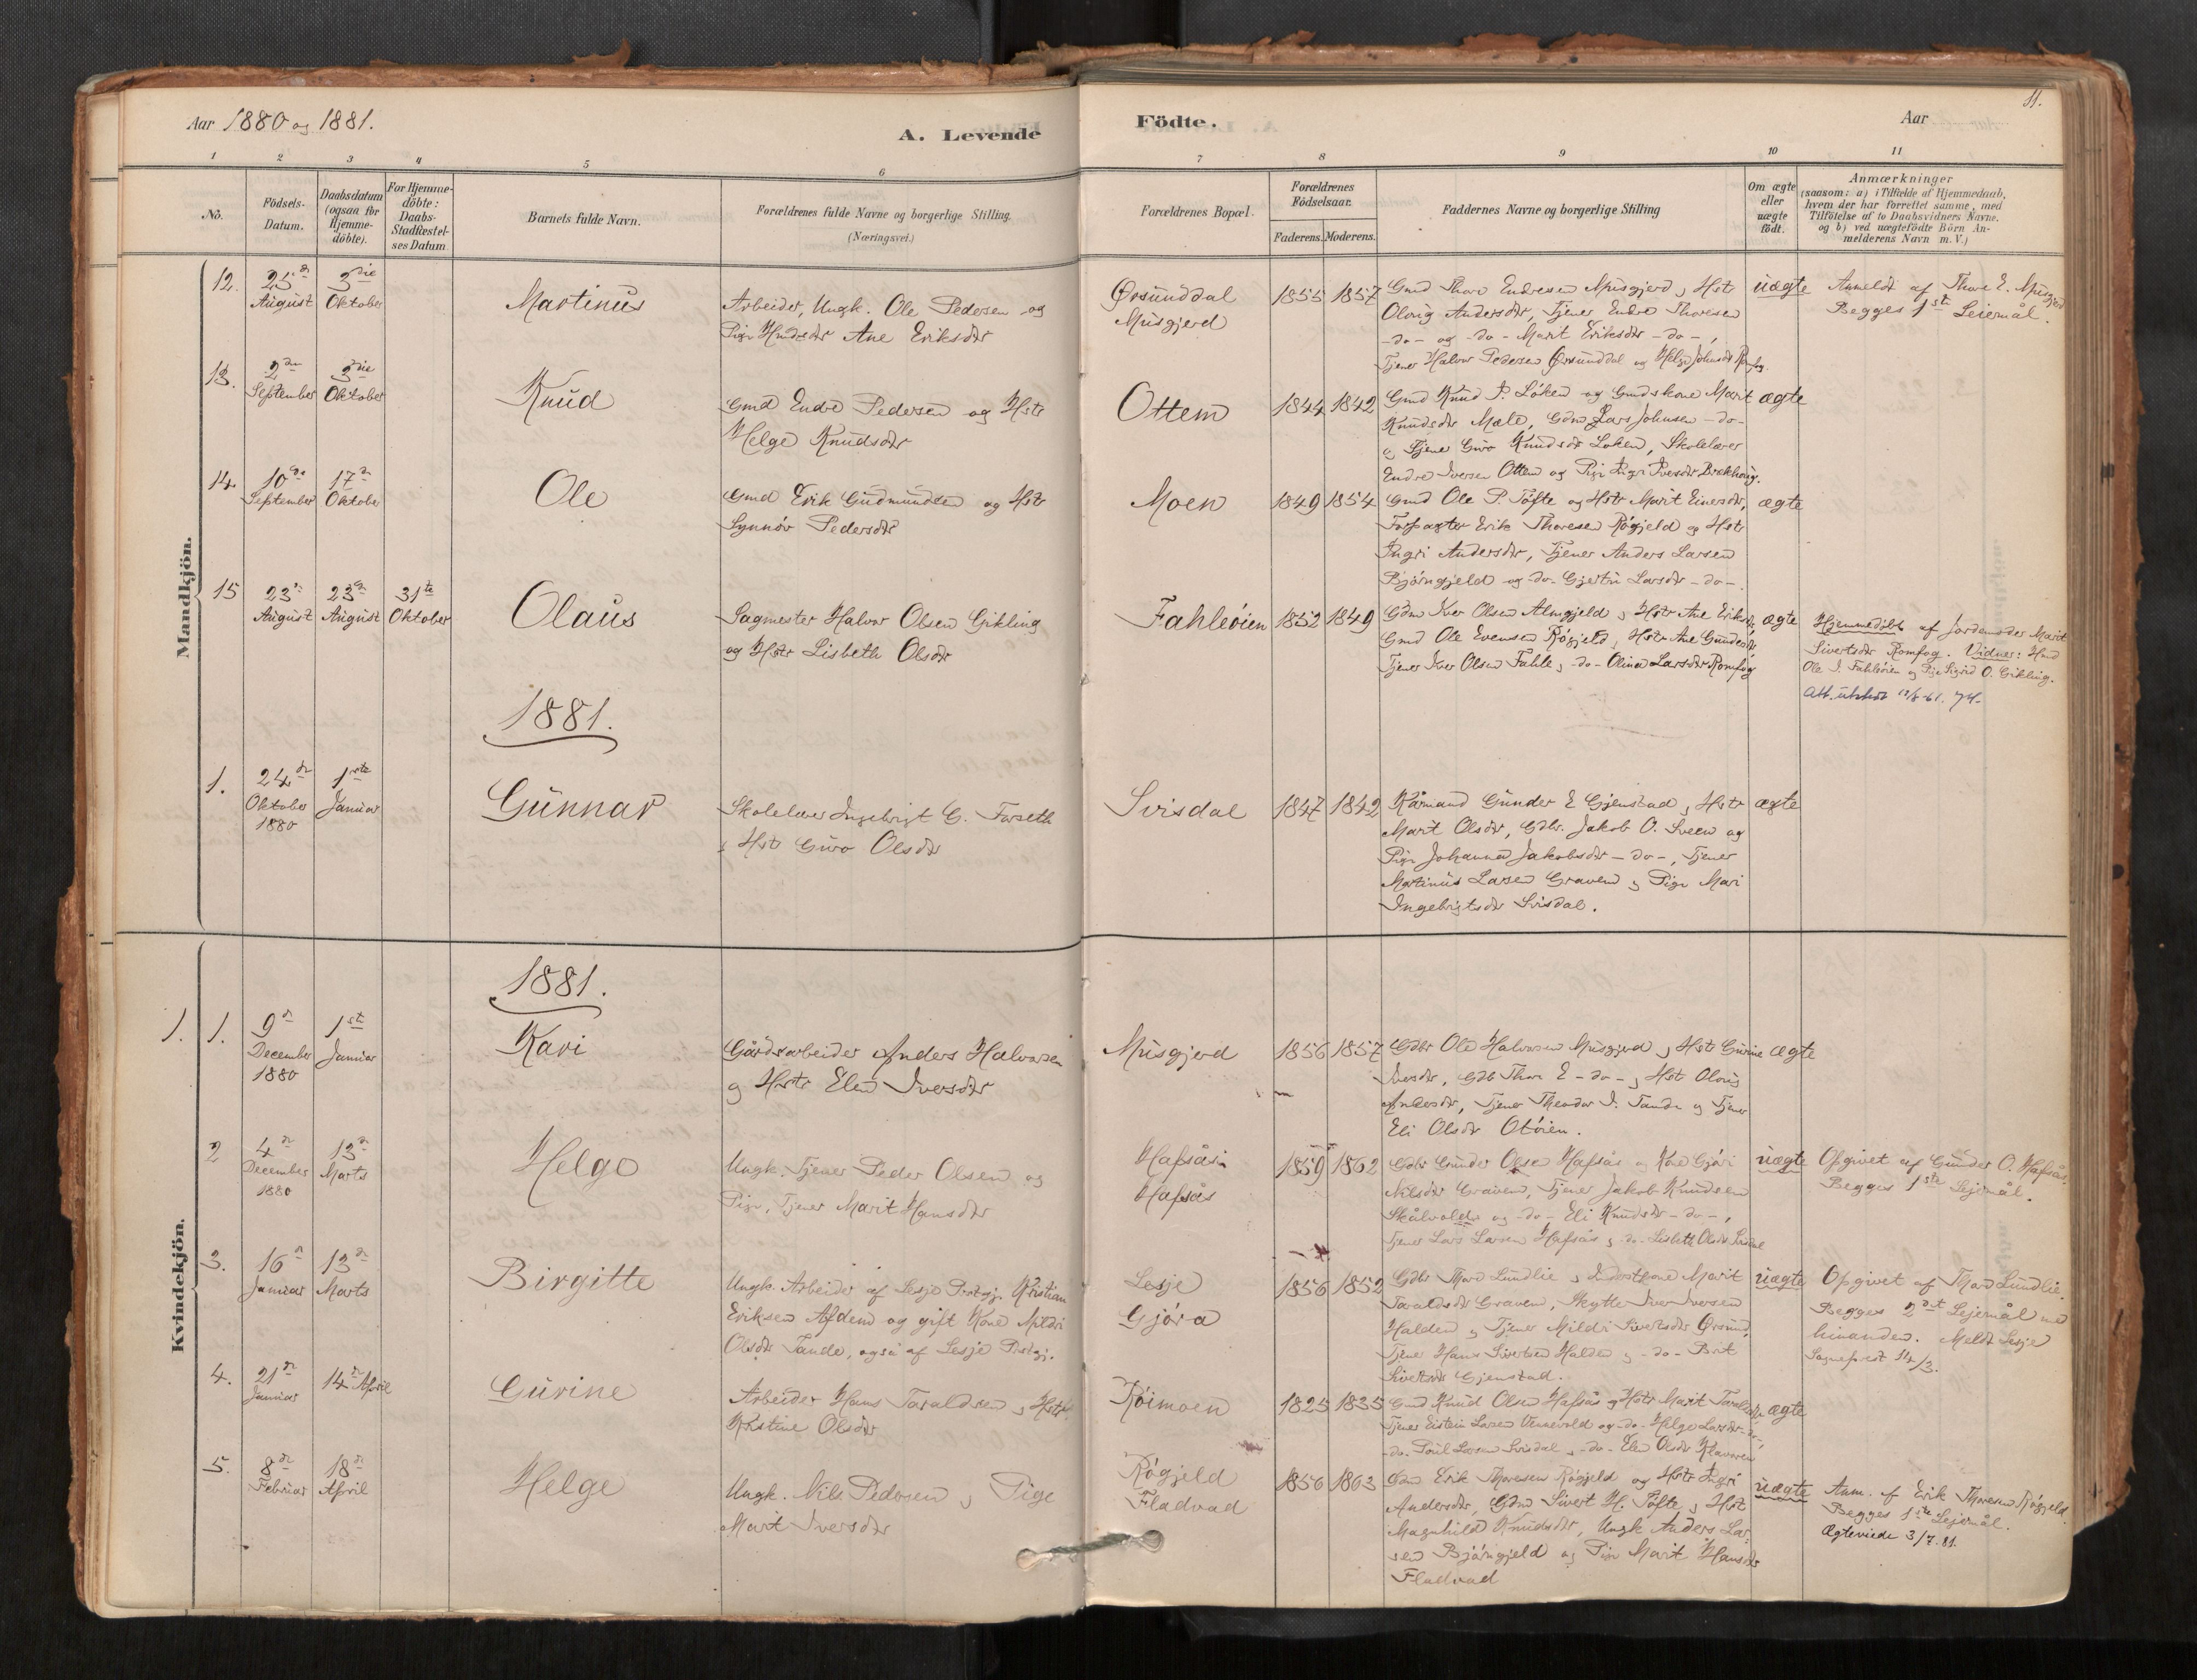 Aar 1880 og 1881.
A. Levende
Födte.
Aar
11.
1 2 3 4 5 6 7 8 9 10 11
No.
Födsels-Datum.
Daabsdatum (ogsaa for Hjemme-döbte).
For Hjemme-döbte: Daabs-Stadfæstel-ses Datum
Barnets fulde Navn.
Forældrenes fulde Navne og borgerlige Stilling. (Næringsvei.)
Forældrenes Bopæl.
Forældrenes Födselsaar.
Faderens. Moderens.
Faddernes Navne og borgerlige Stilling
Om ægte eller uægte födt.
Anmærkninger
(saasom: a) i Tilfælde af Hjemmedaab,
hvem der har forrettet samme, med
Tilföielse af to Daabsvidners Navne.
og b) ved uægtefödte Börn An-
melderens Navn m. V.)
Mandkjön.
12. 25de August 3die Oktober
Martinus
Arbeider, Ungk. Ole Pedersen og
Pige Ane Eriksdtr
Ørsunddal
Musgjerd
1855 1857
Gmd Thore Endresen Musgjerd, Hstr
Olorig Andersdtr, Tjener Endre Thoresen
-do- og -do- Marit Eriksdtr -do-,
Tjener Halvor Pedersen Ørsunddal og Helge Johnsdtr Romfog.
uægte
Anmeldt af Thore E. Musgjerd
Begges 1st Leiermål.
13. 2den September 3die Oktober
Knud
Gmd Endre Pedersen og Hstr
Helge Knudsdtr
Ottem
1844 1842
Gmd Knud P. Löken og Gmdskone Marit
Knudsdtr Mæle, Gdm Lars Johnsen -do-
og Tjene Guro Knudsdtr Loken, Skolelærer
Endre Iversen Ottem og Pige Ingri Iversdtr Brekhoug.
ægte
14. 10de September 17de Oktober
Ole
Gmd Erik Gudmundsen og Hstr
Synnöv Pedersdtr
Moen
1849 1854
Gmd Ole P. Töfte og Hstr Marit Einersdtr,
Forpagter Erik Thoresen Rögjeld og Hstr
Ingri Andersdtr, Tjener Anders Larsen
Björngjeld og -do- Gjertru Larsdtr -do-.
ægte
15 23de August 23de August 31te Oktober
Olaus
Sagmester Halvor Olsen Gikling
og Hstr Lisbeth Olsdtr
Fahleöien
1852 1849
Gdm Iver Olsen Almgjeld, Hstr Ane Eriksdtr,
Gmd Ole Evensen Rögjeld, Hstr Ane Gundersdtr
Tjener Iver Olsen Fahle, -do- Olina Larsdtr Romfog
ægte
Hjemmedöbt af Jordemoder Marit
Sivertsdtr Romfog. Vidner: Hmd
Ole I. Fahleöien og Pige Sigrid O. Gikling.
Att. utskrt 12/8-61.
1881.
1. 24de Oktober 1880 1ste Januar
Gunnar
Skolelærer Ingebrigt G. Forseth
, Hstr Guro Olsdtr
Svisdal
1847 1842
Kårmand Gunder E Gjenstad, Hstr
Marit Olsdtr, Gdbr. Jakob O. Sveen og
Pige Johanna Jakobsdtr -do-, Tjener
Martinus Larsen Graven, Pige Mari
Ingebrigtsdtr Svisdal.
ægte
Kvindekjön.
1881.
1. 1. 9de December 1880 1st Januar
Kari
Gårdsarbeider Anders Halvorsen
og Hstr Elen Iversdtr
Musgjerd
1856 1857
Gdbr Ole Halvorsen Musgjerd, Hstr Gurine
Iversdtr, Gdb Thore E -do-, Hstr Olorig
Andersdtr, Tjener Theodor I. Tande og Tjener
Eli Olsdtr Otöien.
ægte
2 4de December 1880 13de Marts
Helge
Ungk. Tjener Peder Olsen og
Pige, Tjener Marit Hansdtr
Hafsås
Hafsås
1859 1862
Gdbr Gunder Olsen Hafsås og Kone Gjöri
Nilsdtr Graven, Tjener Jakob Knudsen
og -do- Eli Knudsdtr -do-,
Tjener Lars Larsen Hafsås, -do- Lisbeth Olsdtr Svisdal
uægte
Opgivet af Gunder O. Hafsås.
Begges 1ste Lejermål.
3. 16de Januar 13de Marts
Birgitte
Ungk. Arbeider af Lesje Prstgj. Kristian
Eriksen Afdem og gift Kone Mildri
Olsdtr Tande, også af Lesje Prstgj.
Lesje
Gjöra
1856 1852
Gdbr Thore Lundlie, Marit
Taraldsdtr Graven, Skytte Iver Iversen
Halden, Tjener Mildri Sivertsdtr Ørsund,
Tjener Hans Sivertsen Halden, -do- Brit
Sivertsdtr Gjenstad.
uægte
Opgivet af Thore Lundlie.
Begges 2det Lejermål med
hinanden. Meldt Lesje
Sogneprest 14/3.
4. 21de Januar 14de April
Gurine
Arbeider Hans Taraldsen, Hstr
Kristine Olsdtr
Röimoen
1825 1835
Gmd Knud Olsen Hafsås og Hstr Marit Taraldsdtr,
Tjener Eistein Larsen Vennevold og -do- Helge Larsdtr -do-,
-do- Poul Larsen Svisdal, -do- Elen Olsdtr
ægte
5. 8de Februar 18de April
Helge
Ungk. Nils Pedersen, Pige
Marit Iversdtr
Rögjeld
Fladvad
1856 1863
Gdm Erik Thoresen Rögjeld og Hstr Ingri
Andersdtr, Gdm Sivert H. Töfte, Hstr
Magnhild Knudsdtr, Ungk Anders Lar-
sen Björngjeld og Pige Marit Hansdtr
Fladvad
uægte
Anm. af Erik Thoresen Rögjeld.
Begges 1ste Lejermål.
Ægteviede 3/7.81.